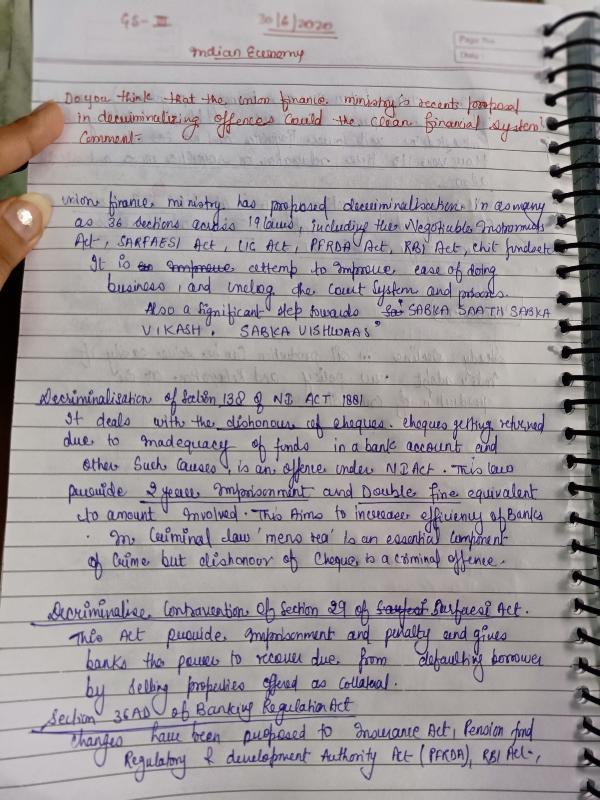 GS-III 30/6/2020
Page No.
Date
Indian Economy
Do you think that the union finance ministry's recents proposal
in decriminalizing offences could the clean financial system?
Comment-
union finance ministry has proposed decriminalisation in as many
as 36 sections across 19 laws, including the Negotiable Instruments
Act, SARFAESI Act, LIC Act, PFRDA Act, RBI Act, chit funds etc
It is an improve attempt to improve ease of doing
business, and unclog the court system and prisons.
Also a significant step towards "SABKA SAATH SABKA
VIKASH. SABKA VISHWAAS"
Decriminalisation of Section 138 of NI ACT 1881
It deals with the dishonour of cheques. cheques getting returned
due to inadequacy of funds in a bank account and
other such causes, is an offence under NI Act. This law
provide 2 years imprisonment and Double fine equivalent
to amount involved. This Aims to increase efficiency of Banks
. In Criminal law 'mens rea' is an essential component
of Crime but dishonour of Cheque is a criminal offence.
Decriminalise Contravention of Section 29 of Surfaesi Act.
This Act provide imprisonment and penalty and gives
banks the power to recover due from defaulting borrower
by selling properties offered as collateral.
Section 36AD of Banking Regulation Act
changes have been proposed to Insurance Act, Pension find
Regulatory & development Authority Act (PFRDA), RBI Act,